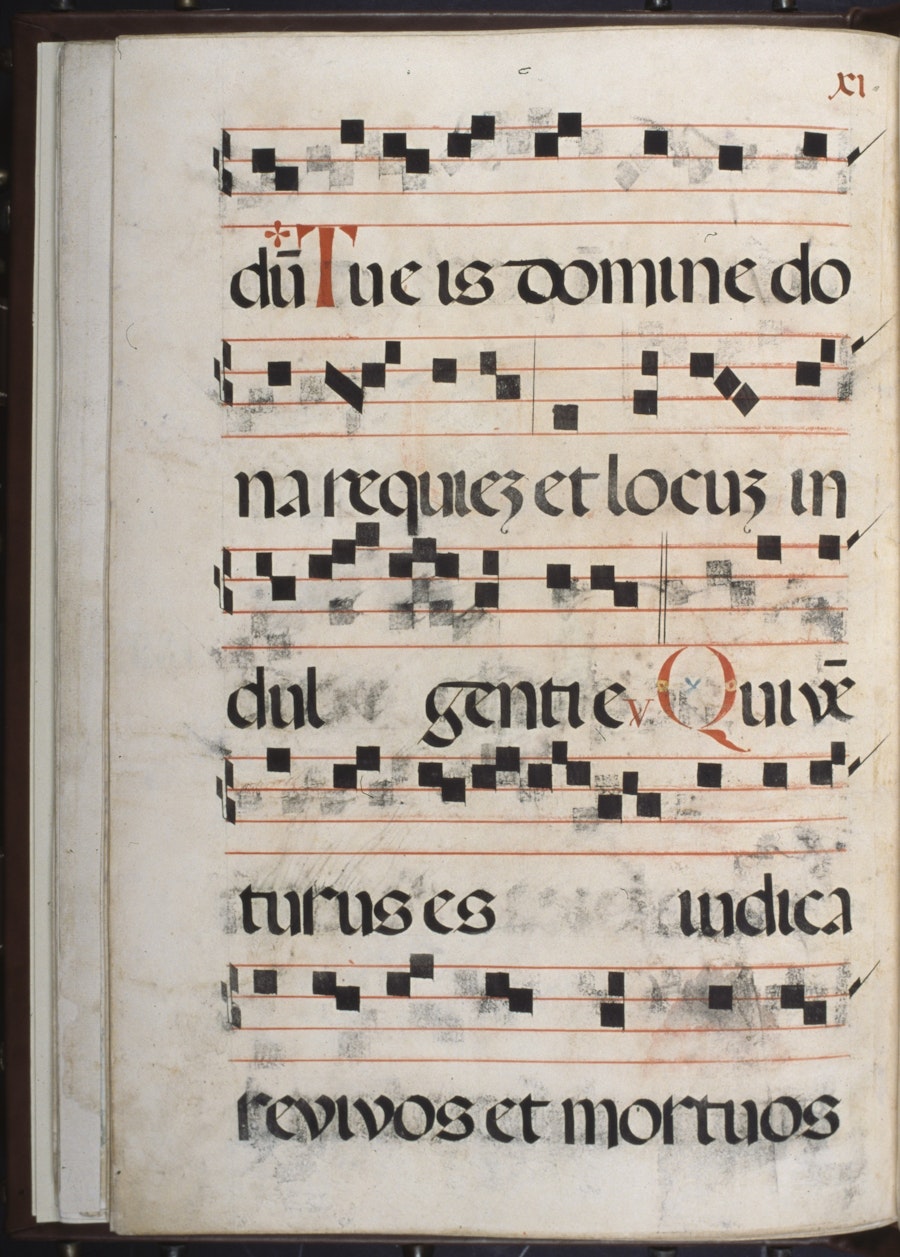 XI
dū Tu eis domine do
na requiez et locuz in
dulgentie v Qui vē
turus es iudica
re vivos et mortuos